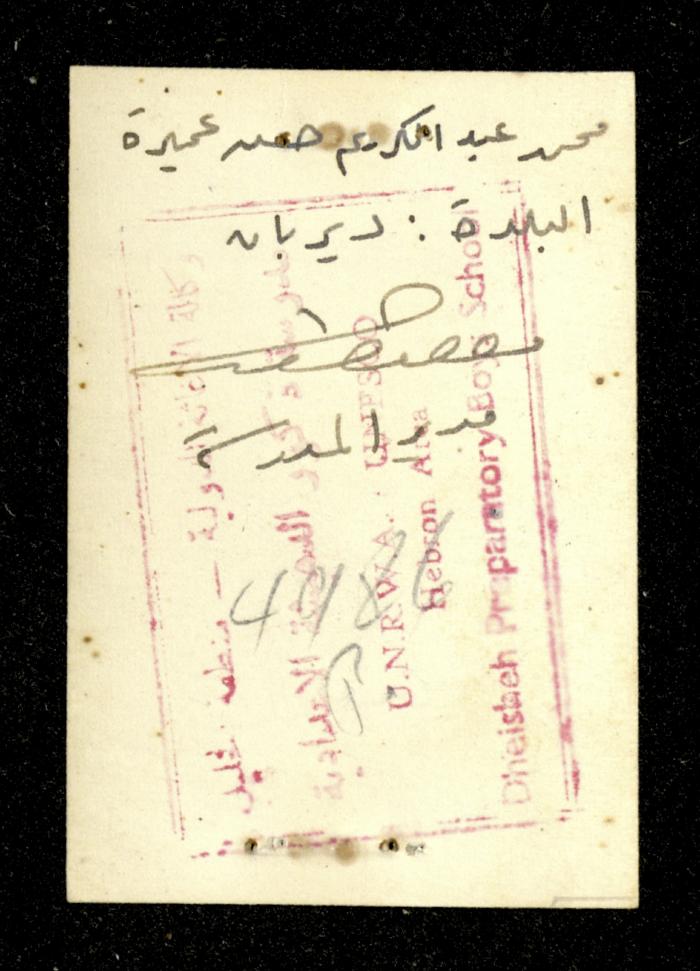 محمد عبد الكريم حسن عميرة
البلدة : ديربان
مدير المدرسة
وكالة الاغاثة الدولية — منطقة الخليل
مدرسة ذكور الدهيشة الاعدادية
U.N.R.W.A. UNESCO
Hebron Area
Dheisheh Preparatory Boys School